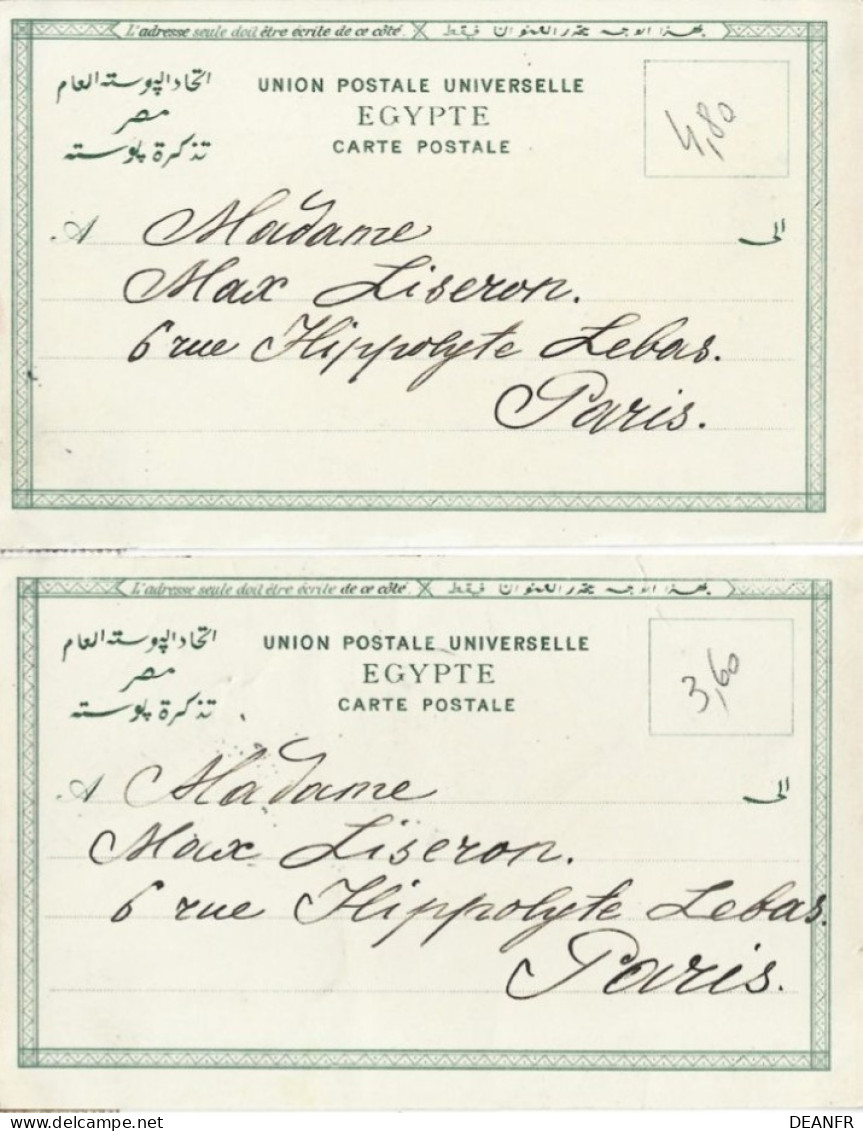 L'adresse seule doit être écrite de ce côté. بهذا الوجه يحرر العنوان فقط
اتحاد البوسته العام
مصر
تذكرة بوسته
UNION POSTALE UNIVERSELLE
EGYPTE
CARTE POSTALE
4,80
A Madame الى
Max Liseron.
6 rue Hippolyte Lebas.
Paris.
L'adresse seule doit être écrite de ce côté. بهذا الوجه يحرر العنوان فقط
اتحاد البوسته العام
مصر
تذكرة بوسته
UNION POSTALE UNIVERSELLE
EGYPTE
CARTE POSTALE
3,60
A Madame الى
Max Liseron.
6 rue Hippolyte Lebas.
Paris.
DEANFR